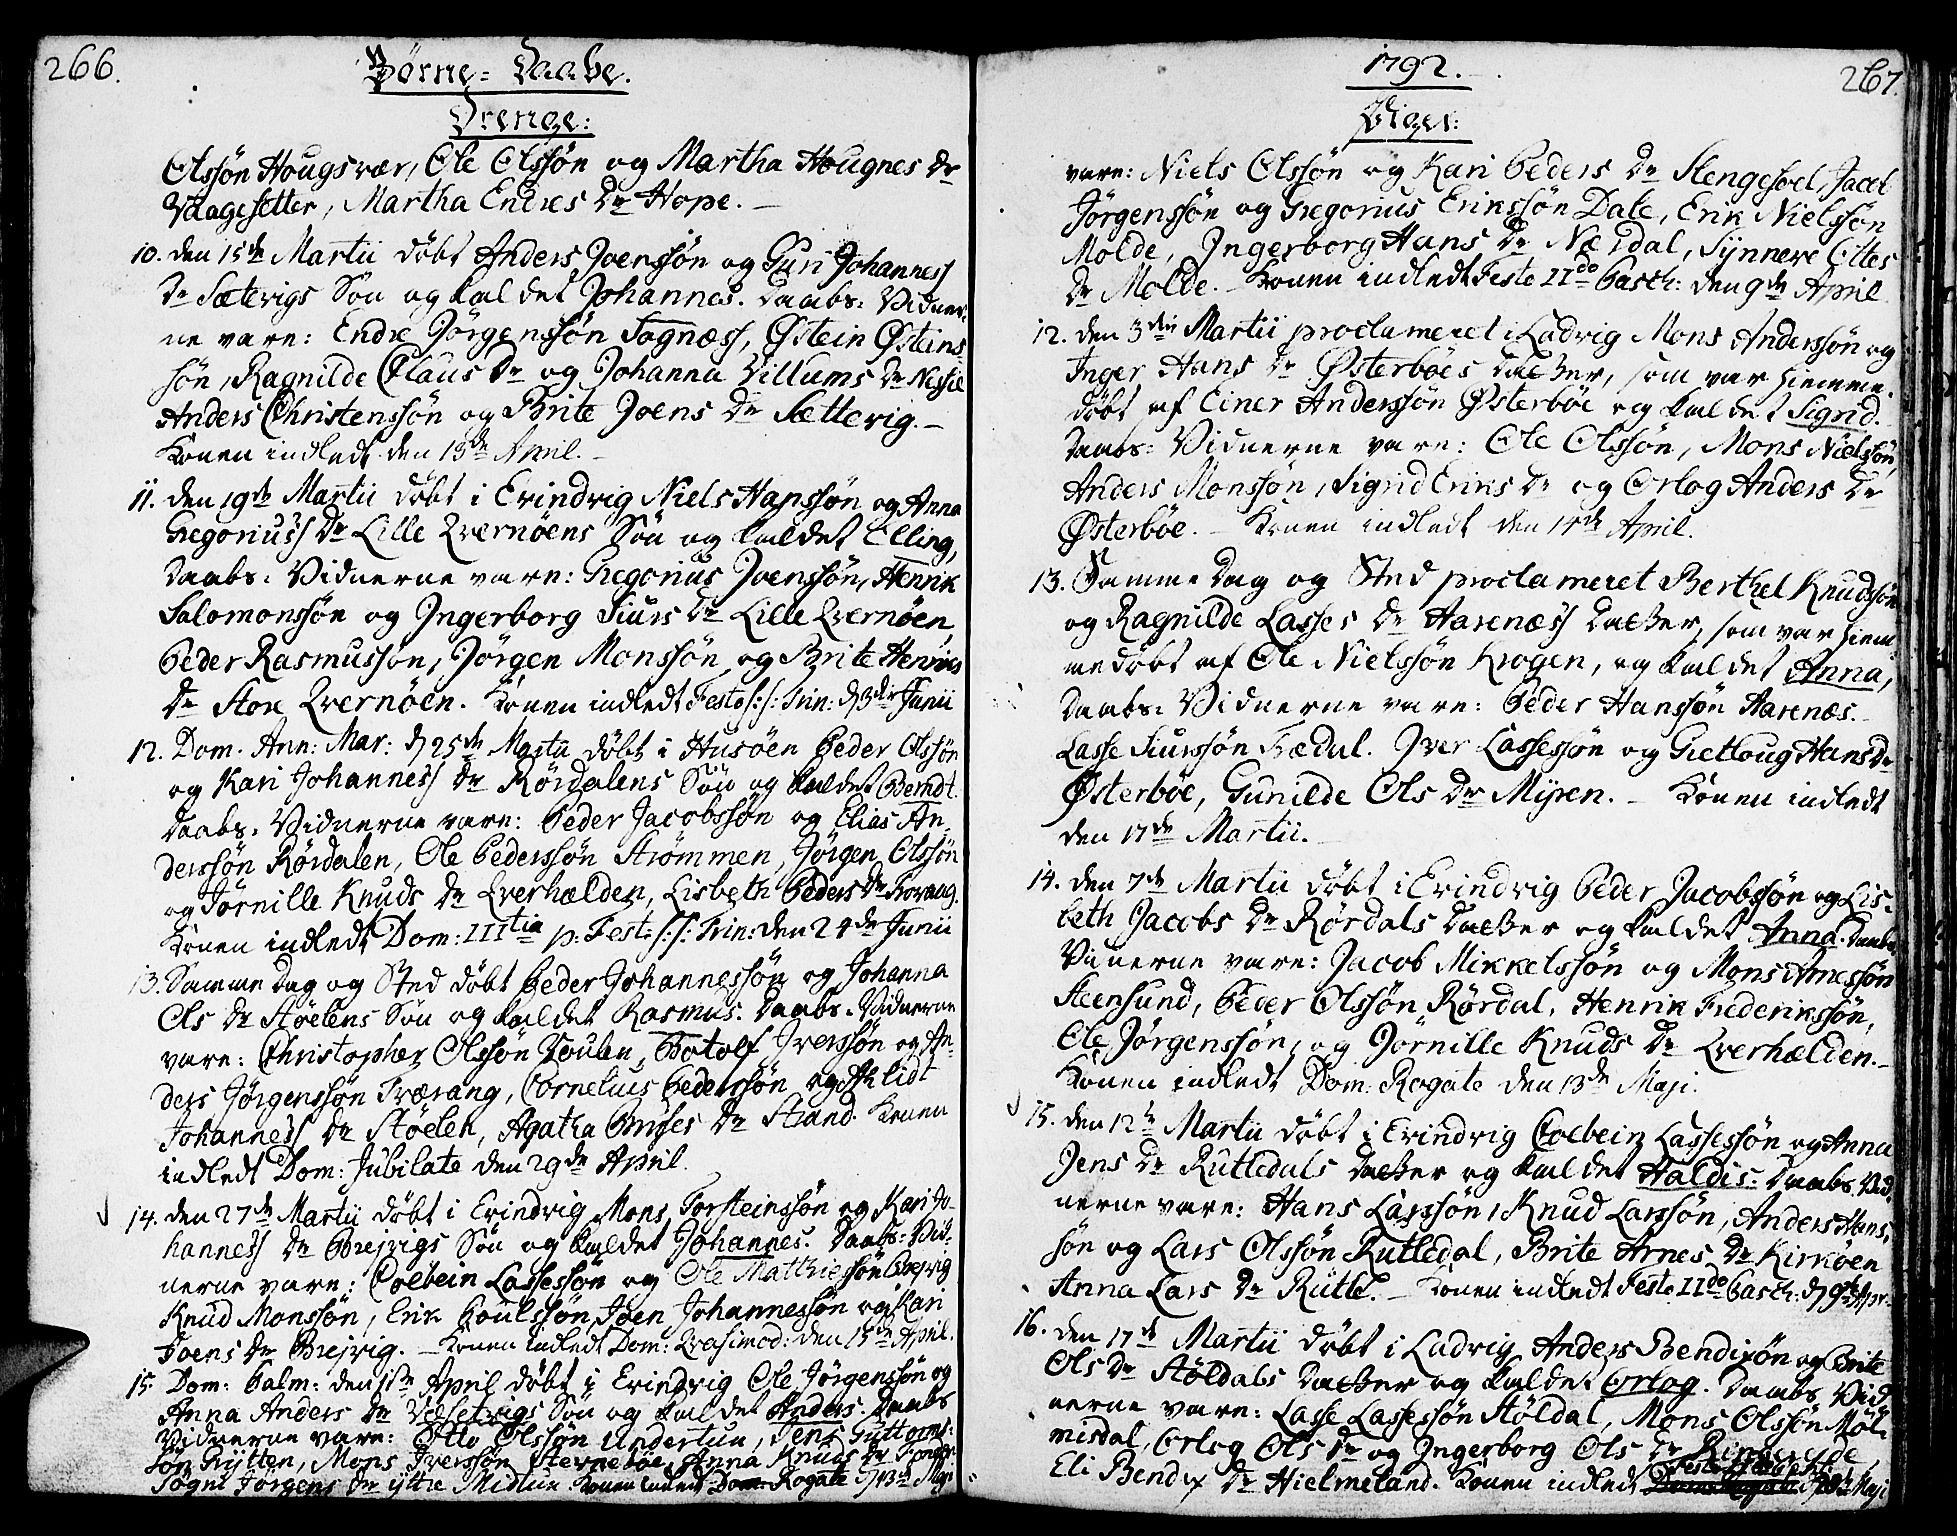 266.
Børne-Daabe.
Drenge:
Olssön Hougsvær, Ole Olssön og Martha Hougnes Dr
Vaagesetter, Martha Endres Dr Hope. —
10. den 15de Martii döbt Anders Joenssön og Guri Johanness
Dr Sæterigs Sön og kaldet Johannes. Daabs-Vidner-
ne vare: Endre Jörgenssön Sognæss, Östein Östeins
sön, Ragnilde Claus Dr og Johanna Villums Dr
Anders Christenssön og Brite Joens Dr Sættevig. —
Konen indledt den 15de April. —
11. den 19de Martii döbt i Evindvig Niels Hanssön og Anna
Gregoriuss Dr Lille Qvernöens Sön og kaldet Elling,
Daabs-Vidnerne vare: Gregorius Joenssön, Henrik
Salomonssön og Jngerborg Siurs Dr Lille Qvernöen,
Peder Rasmussön, Jörgen Monssön og Brite Henriks
Dr Store Qvernöen. Konen indledt Festo s:s: Trin: d 3die Junii
12. Dom. Ann: Mar: d 25de Martii döbt i Husöen Peder Olssön
og Kari Johanness Dr Rördalens Sön og kaldet Berndt.
Daabs-Vidnerne vare: Peder Jacobssön og Elias An-
derssön Rördalen, Ole Pederssön Strömmen, Jörgen Olssön
og Jörnille Knuds Dr Qverhælden, Lisbeth Peders Dr
Konen indledt Dom: IIItia p: Fest: s:s: Trin: den 24de Junii
13. Samme Dag og Sted döbt Peder Johannessön og Johanna
Ols Dr Stöelens Sön og kaldet Rasmus: Daabs-Vidnerne
vare: Christopher Olssön Poulen, Botolf Jverssön og An-
ders Jörgenssön Træerang, Cornelius Pederssön og
Johanness Dr Stöelen, Agatha Dr Strand. Konen
indledt Dom: Jubilate den 29de April.
14. den 27de Martii döbt i Evindvig Mons Torsteinssön og Kari Jo-
hanness Dr Brejvigs Sön og kaldet Johannes. Daabs-Vid-
nerne vare: Colbein Lassessön og Ole Matthiessön Brejvig
Knud Monssön, Erik Poulssön, Joen Johannessön og Kari
Joens Dr Brejvig. — Konen indledt Dom: Qvasimod: den 15de April.
15. Dom: Palm: den 1ste April döbt i Evindvig Ole Jörgenssön og
Anna Anders Dr Sön og kaldet Anders. Daabs
Vidnerne vare: Otto Olssön Undertun, Jens Guttorms-
sön Rytten, Mons Jverssön Sterneböe, Anna Knuds Dr
Sögni Jörgens Dr yttre Midtun. Konen indledt Dom: Rogate d 13de Maji
1792.
267
Piger:
vare: Niels Olssön og Kari Peders Dr Slengesoel, Jacob
Jörgenssön og Gregorius Erikssön Dale, Erik Nielssön
Molde, Jngerborg Hans Dr Nærdal, Synneve Ottes
Dr Molde. — Konen indledt Festo IIdo Pasch: den 9de April
12. den 3die Martii proclameret i Ladvig Mons Anderssön og
Jnger Hans Dr Österböes Datter, som var hiemme-
döbt af Einer Anderssön Österböe og kaldet Sigrid.
Daabs-Vidnerne vare: Ole Olssön, Mons Nielssön,
Anders Monssön, Sigrid Eriks Dr og Orlog Anders Dr
Österböe. — Konen indledt den 15de April.
13. Samme Dag og Sted proclameret Berthel Knudssön
og Ragnilde Lasses Dr Aarenæss Datter, som var hiem-
medöbt af Ole Nielssön Krogen, og kaldet Anna,
Daabs-Vidnerne vare: Peder Hanssön Aarenæs. —
Lasse Siurssön Trædal. Jver Lassessön og Gietloug Hans Dr
Österböe, Gunilde Ols Dr Myren. — Konen indledt
den 17de Martii. —
14. den 7de Martii döbt i Evindvig Peder Jacobssön og Lis-
beth Jacobs Dr Rördals Datter og kaldet Anna. Daabs-
Vidnerne vare: Jacob Mikkelssön og Mons Arnessön
Steensund, Peder Olssön Rördal, Henrik Frederikssön,
Ole Jörgenssön, og Jörnille Knuds Dr Qverhælden. —
Konen indledt Dom: Rogate den 13de Maji.
15. den 12te Martii döbt i Evindvig Colbein Lassessön og Anna
Jens Dr Rutledals Datter og kaldet Haldis: Daabs-Vid-
nerne vare: Hans Larssön, Knud Larssön, Anders Hans-
sön og Lars Olssön Rutledal, Brite Arnes Dr Kirköen
Anna Lars Dr Rutle. — Konen indledt Festo IIdo Pasch: d 9de Apr:
16. den 17de Martii döbt i Ladvig Anders Bendixön og Brite
Ols Dr Stöldals Datter og kaldet Orlog. Daabs Vid-
nerne vare: Lasse Lassessön Stöldal, Mons Olssön Möl-
misdal, Orlog Ols Dr og Jngerborg Ols Dr
Eli Bendix Dr Hielmeland. Konen indledt Maji